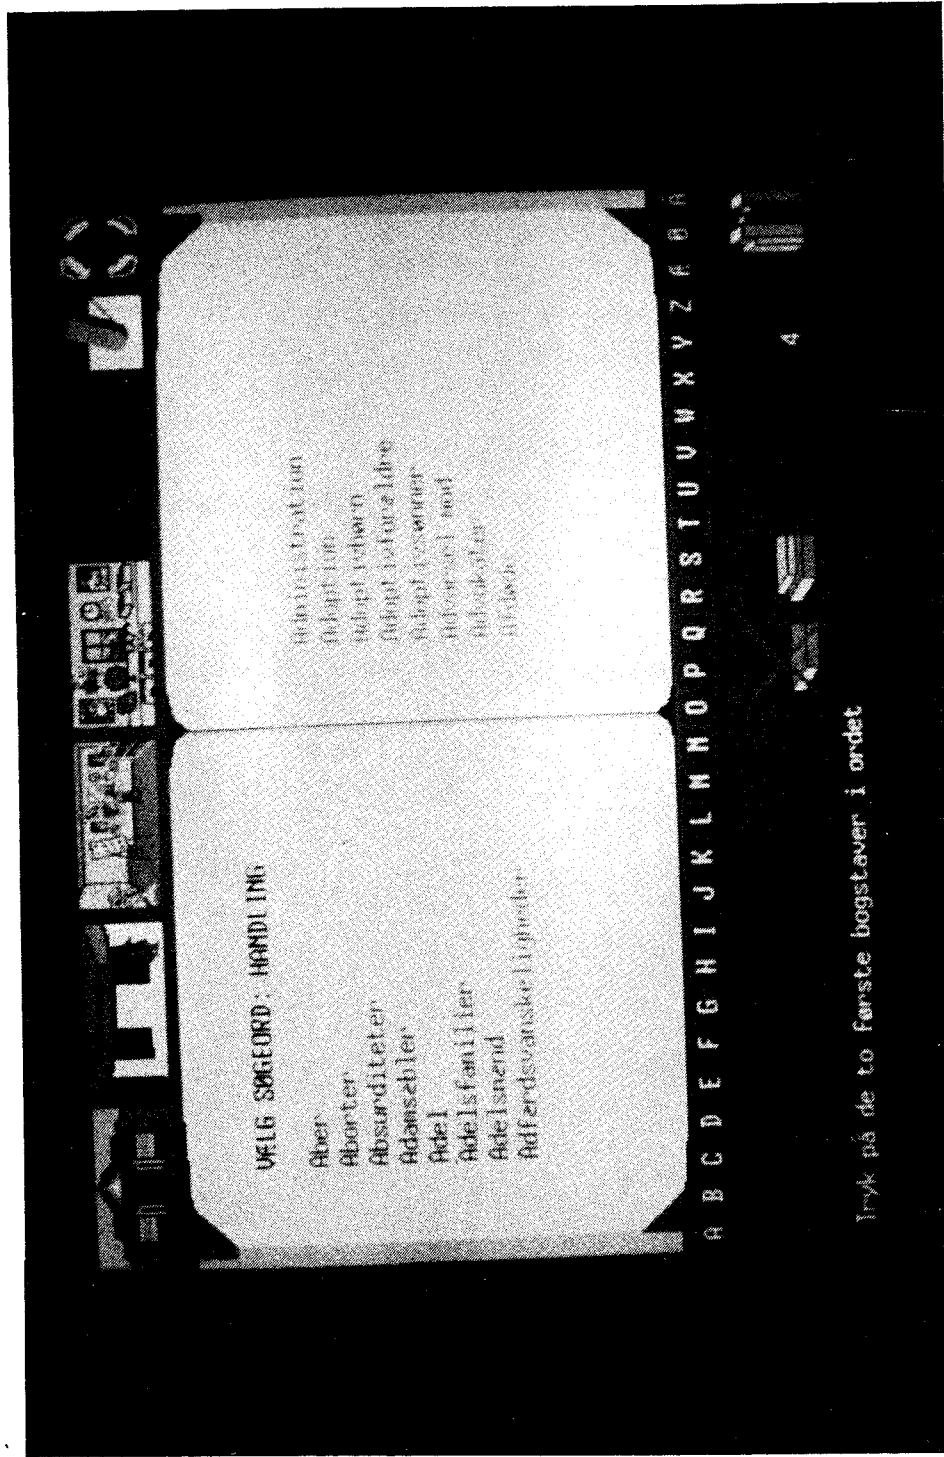 VÆLG SØGEORD: HANDLING
Aber
Aborter
Absurditeter
Adamsæbler
Adel
Adelsfamilier
Adelsmænd
Adfærdsvanskeligheder
Administration
Adoption
Adoptivbørn
Adoptivforældre
Adoptivsønner
Advarsel mod
Advokater
A B C D E F G H I J K L M N O P Q R S T U V W X Y Z Æ Ø Å
4
Tryk på de to første bogstaver i ordet